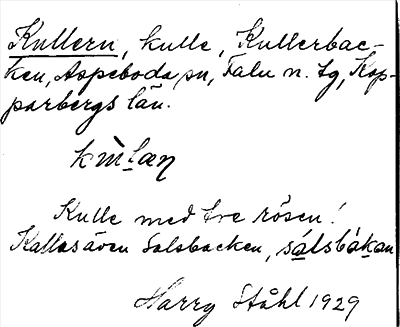 Kullern, kulle, Kullerbac-
ken, Aspeboda sn, Falu n. tg, Kop-
parbergs län.
kɯ̀læṇ
Kulle med tre rösen!
Kallas även Salsbacken, sálsbàkan
Harry Ståhl 1929